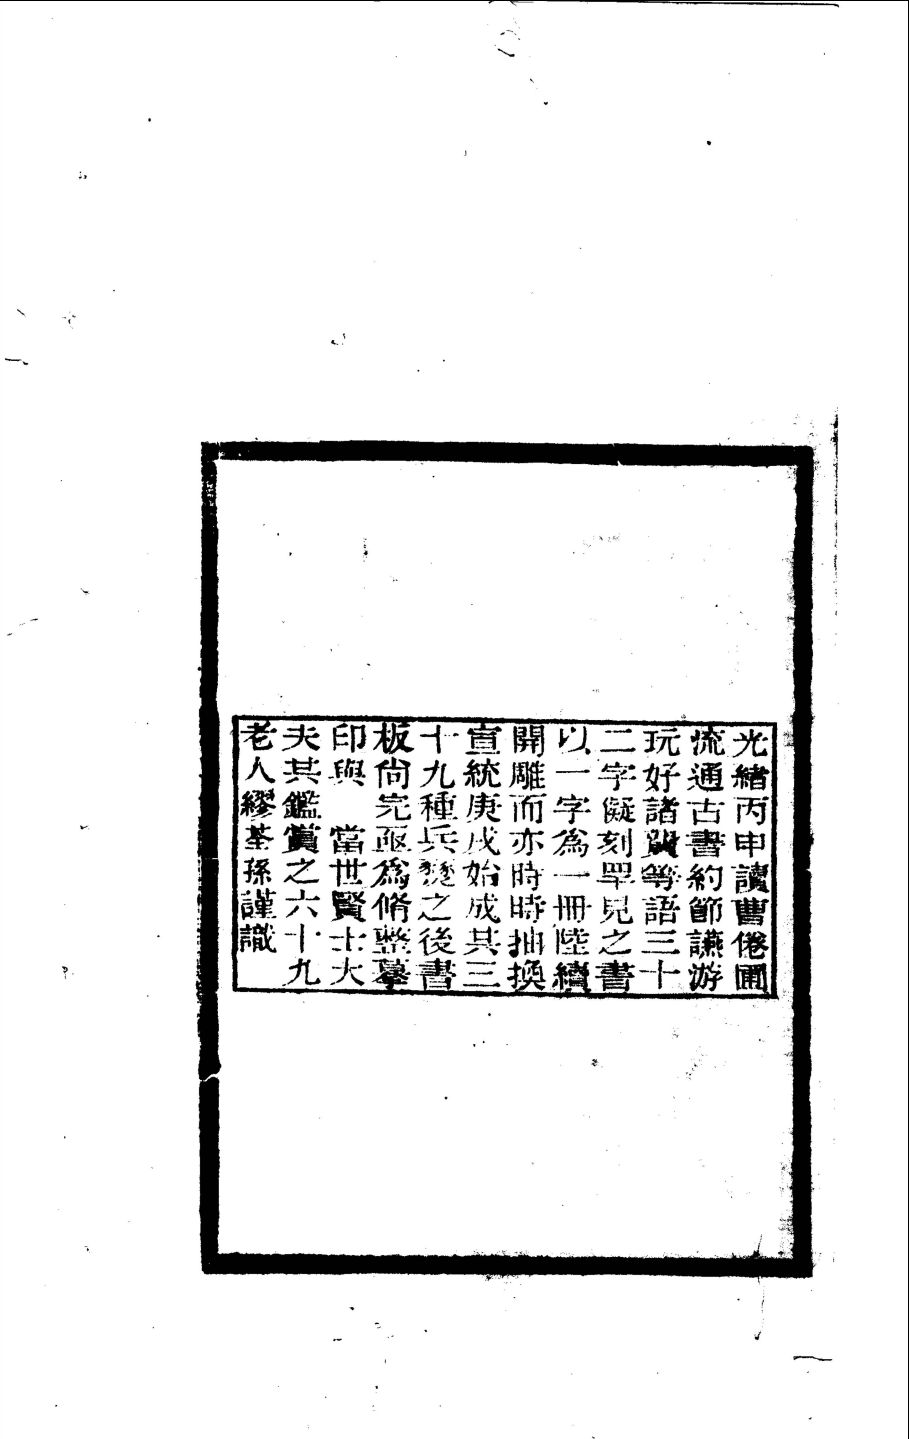 光緒丙申讀曹倦圃
流通古書約節讌游
玩好諸費等語三十
二字儗刻罕見之書
以一字為一冊陸續
開雕而亦時時抽換
宣統庚戌始成其三
十九種兵燹之後書
板尙完亟爲脩整摹
印與　當世賢士大
夫共鑑賞之六十九
老人繆荃孫謹識